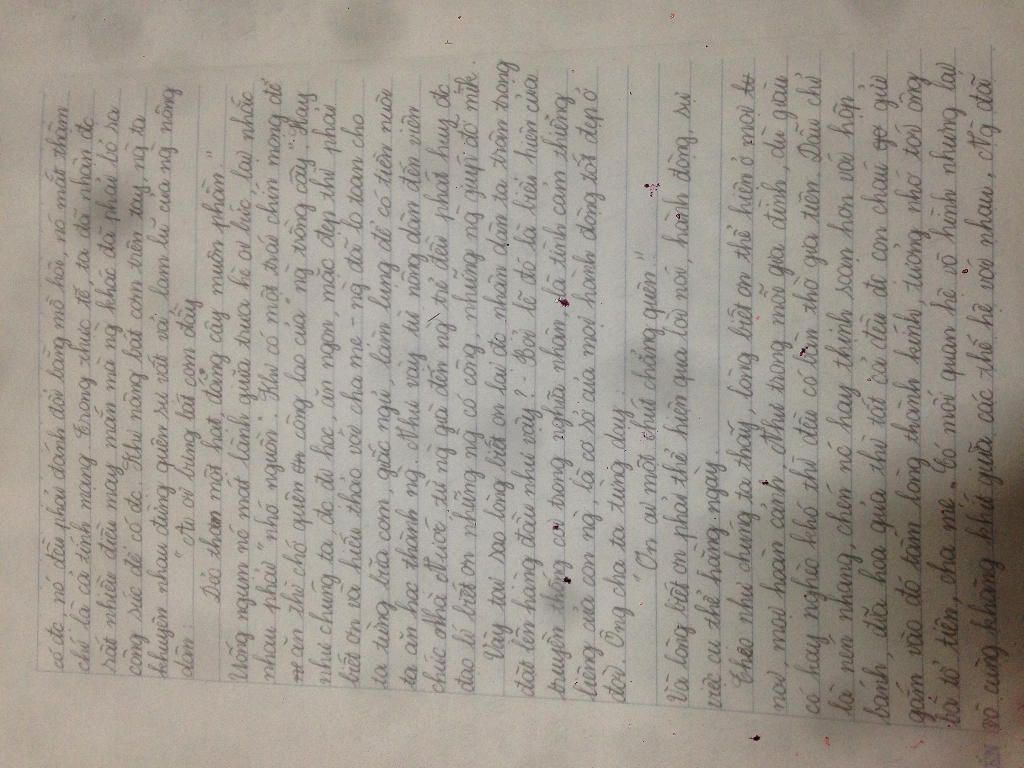 có đc nó đều phải đánh đổi bằng mồ hôi, nó mất thậm
chí là cả tính mạng. Trong thực tế, ta đã nhận đc
rất nhiều điều may mắn mà ng khác đã phải bỏ ra
công sức để có đc. Khi nâng bát cơm trên tay, ng ta
khuyên nhau đừng quên sự vất vả, lam lũ của ng nông
dân:
"Ai ơi bưng bát cơm đầy
Dẻo thơm một hạt đắng cay muôn phần."
Uống ngụm nó mát lành giữa trưa hè oi bức, lại nhắc
nhau phải "nhớ nguồn". Khi có một trái chín mọng để
ăn thì chớ quên công lao của "ng trồng cây", thay
như chúng ta, đc đi học, ăn ngon, mặc đẹp thì phải
biết ơn và hiếu thảo với cha mẹ - ng đã lo toan cho
ta từng bữa cơm, giấc ngủ, làm lụng để có tiền nuôi
ta ăn học thành ng. Như vậy từ nông dân đến viên
chức nhà nước, từ ng già đến ng trẻ đều phát huy đc
đạo lí biết ơn những ng có công, những ng giúp đỡ mik.
Vậy tại sao lòng biết ơn lại đc nhân dân ta trân trọng
đặt lên hàng đầu như vậy? - Bởi lẽ đó là biểu hiện của
truyền thống coi trọng nghĩa nhân, là tình cảm thiêng
liêng của con ng, là cơ sở của mọi hành động tốt đẹp ở
đời. Ông cha ta từng dạy:
"Ơn ai một chút chẳng quên"
Và lòng biết ơn phải thể hiện qua lời nói, hành động, sự
việc cụ thể hàng ngày.
Theo như chúng ta thấy, lòng biết ơn thể hiện ở mọi
nơi, mọi hoàn cảnh. Như trong mỗi gia đình, dù giàu
có hay nghèo khó thì đều có bàn thờ gia tiên. Dẫu chỉ
là nén nhang, chén nó hay thịnh soạn hơn với hộp
bánh, đĩa hoa quả thì tất cả đều đc con cháu gửi
gắm vào đó tấm lòng thành kính tưởng nhớ tới ông
bà tổ tiên, cha mẹ... Có mối quan hệ vô hình nhưng lại
vô cùng khăng khít giữa các thế hệ với nhau. Ng đã